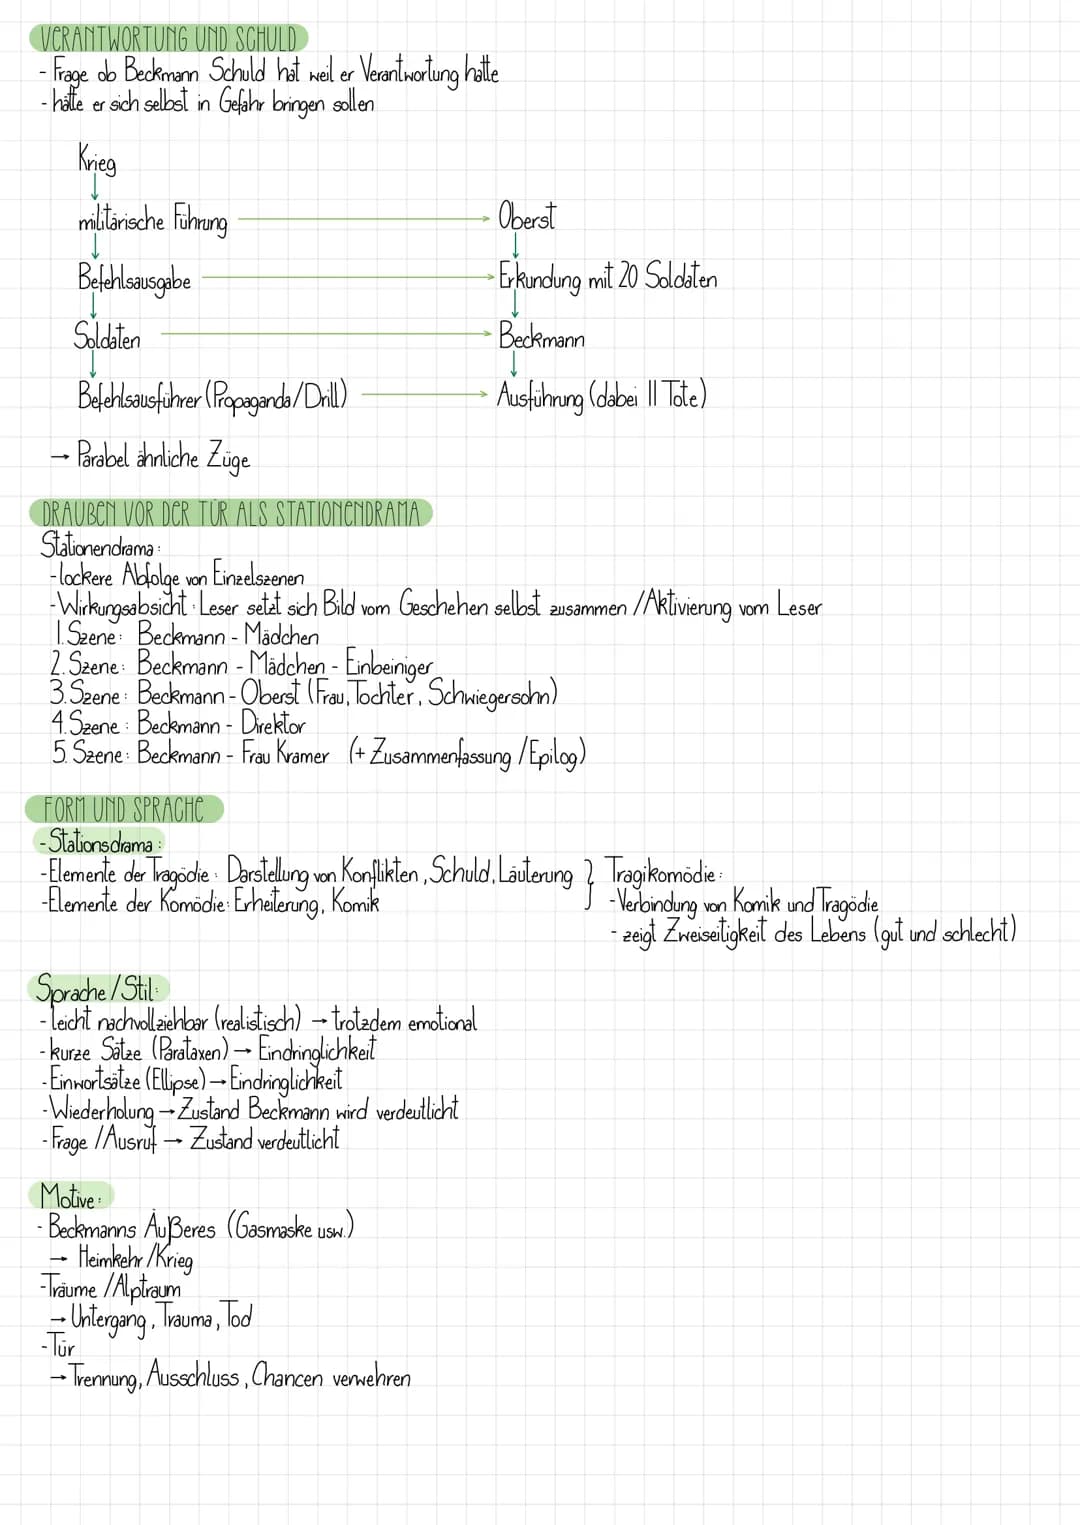 VERANTWORTUNG UND SCHULD
- Frage ob Beckmann Schuld hat weil er Verantwortung hatte
- hätte er sich selbst in Gefahr bringen sollen
Krieg
↓
militärische Führung → Oberst
↓ ↓
Befehlsausgabe → Erkundung mit 20 Soldaten
↓ ↓
Soldaten → Beckmann
↓ ↓
Befehlsausführer (Propaganda/Drill) → Ausführung (dabei 11 Tote)
→ Parabel ähnliche Züge
DRAUßEN VOR DER TÜR ALS STATIONENDRAMA
Stationendrama:
- lockere Abfolge von Einzelszenen
- Wirkungsabsicht: Leser setzt sich Bild vom Geschehen selbst zusammen / Aktivierung vom Leser
1. Szene: Beckmann - Mädchen
2. Szene: Beckmann - Mädchen - Einbeiniger
3. Szene: Beckmann - Oberst (Frau, Tochter, Schwiegersohn)
4. Szene: Beckmann - Direktor
5. Szene: Beckmann - Frau Kramer (+ Zusammenfassung / Epilog)
FORM UND SPRACHE
- Stationsdrama:
- Elemente der Tragödie: Darstellung von Konflikten, Schuld, Läuterung } Tragikomödie:
- Elemente der Komödie: Erheiterung, Komik - Verbindung von Komik und Tragödie
- zeigt Zweiseitigkeit des Lebens (gut und schlecht)
Sprache / Stil:
- leicht nachvollziehbar (realistisch) → trotzdem emotional
- kurze Sätze (Parataxen) → Eindringlichkeit
- Einwortsätze (Ellipse) → Eindringlichkeit
- Wiederholung → Zustand Beckmann wird verdeutlicht
- Frage / Ausruf → Zustand verdeutlicht
Motive:
- Beckmanns Äußeres (Gasmaske usw.)
→ Heimkehr / Krieg
- Träume / Alptraum
→ Untergang, Trauma, Tod
- Tür
→ Trennung, Ausschluss, Chancen verwehren